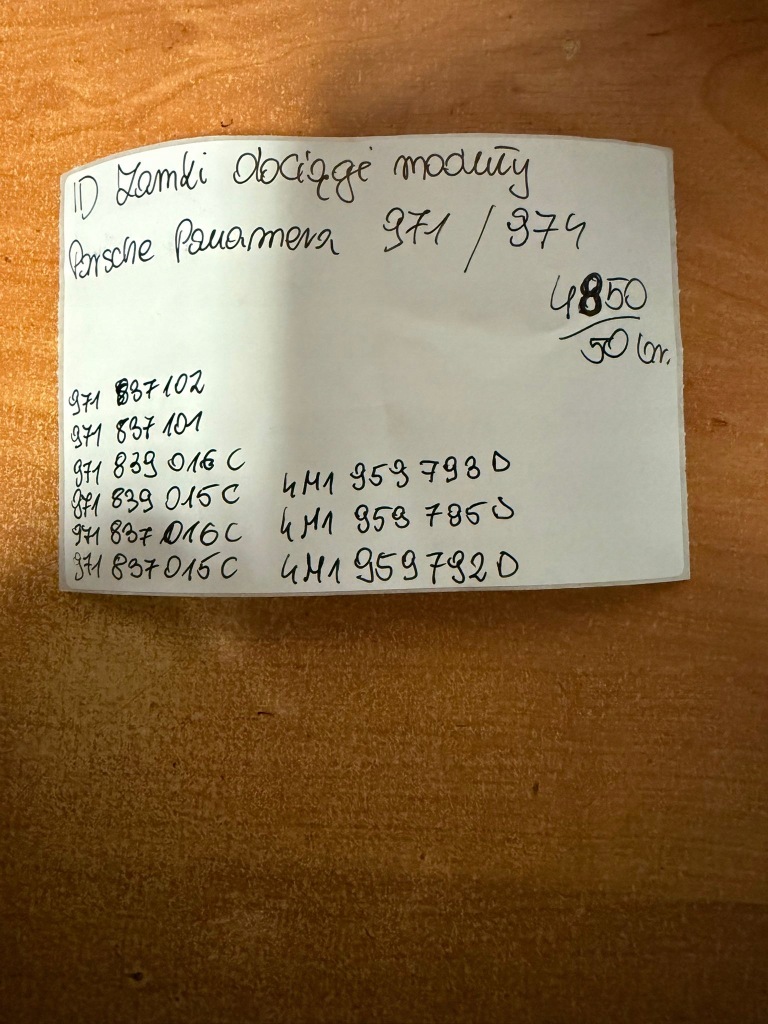 ID Zamki dociągi moduły
Porsche Panamera 971 / 974
4850
50 br.
971 837 102
971 837 101
971 839 016 C
971 839 015 C
971 837 016 C
971 837 015 C
4M1 959 793 D
4M1 959 795
4M1 959 792 D